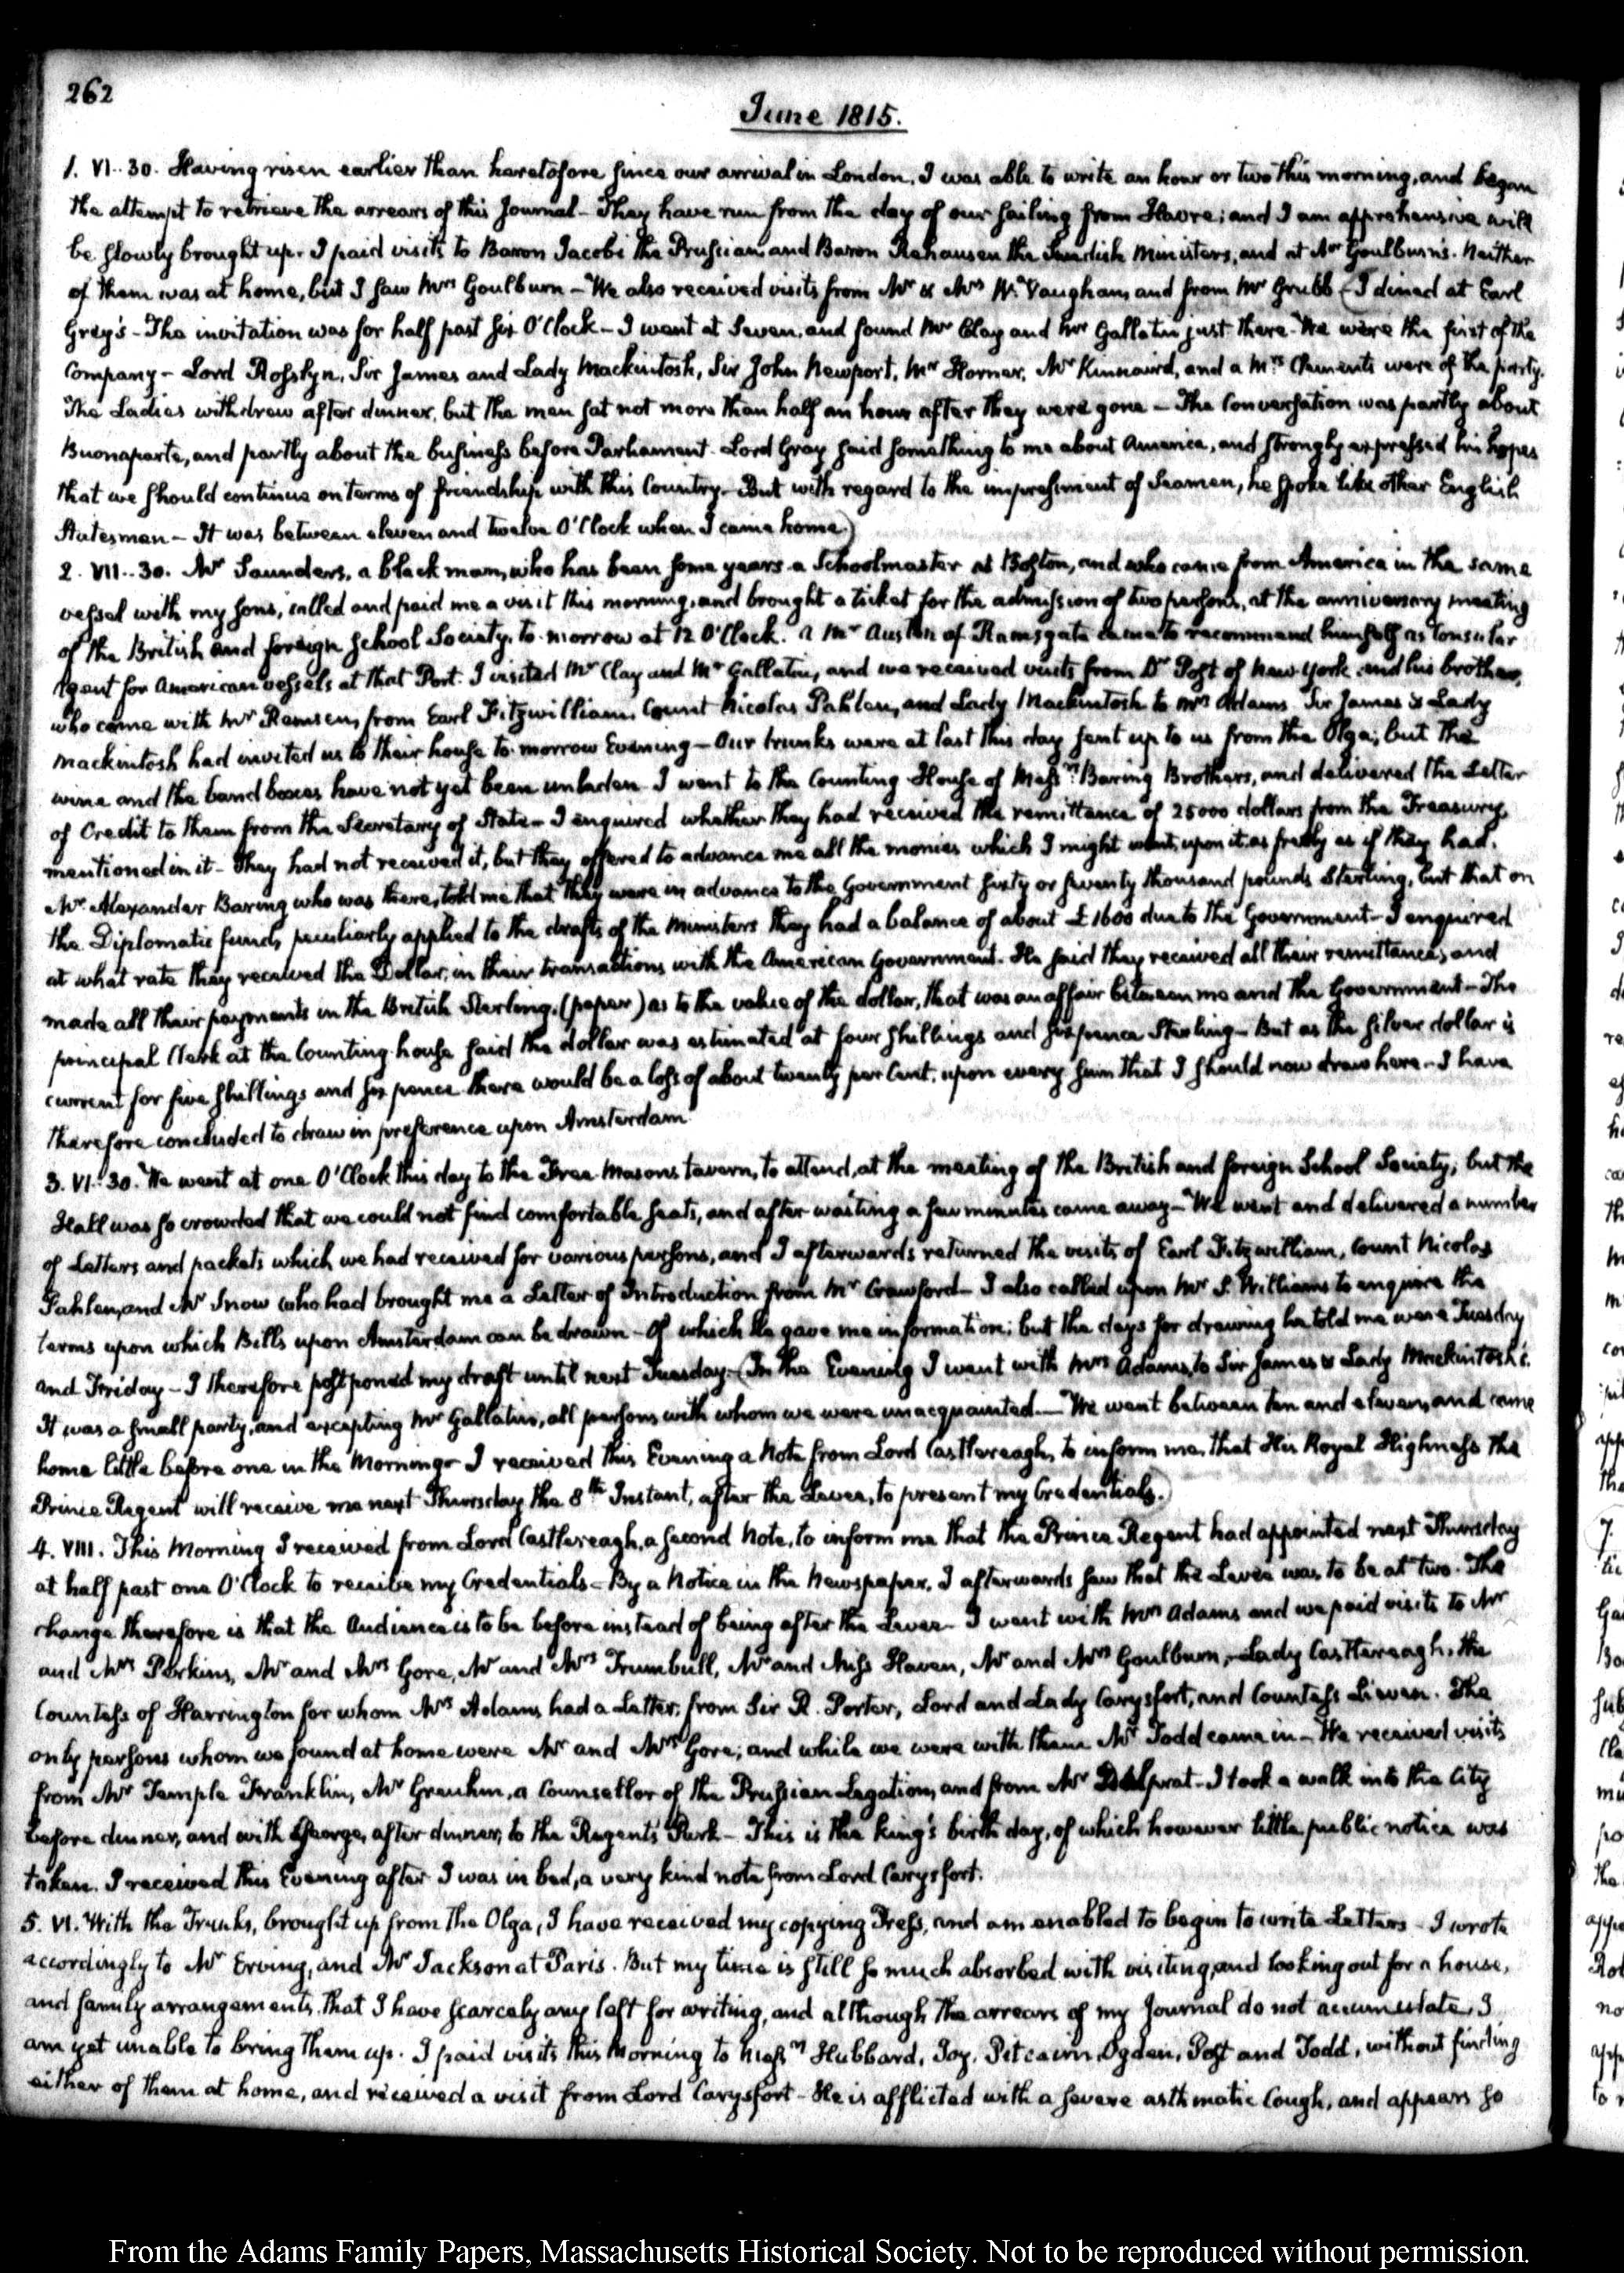 262
June 1815.
1. VI..30. Having risen earlier than heretofore since our arrival in London, I was able to write an hour or two this morning, and began
the attempt to retrieve the arrears of this Journal - They have run from the day of our sailing from Havre; and I am apprehensive will
be slowly brought up. I paid visits to Baron Jacobi the Prussian and Baron Rehausen the Swedish Ministers, and at Mr Goulburn's. Neither
of them was at home, but I saw Mrs Goulburn - We also received visits from Mr & Mrs W. Vaughan, and from Mr Grubb (I dined at Earl
Grey's - The invitation was for half past six O'Clock - I went at Seven, and found Mr Clay and Mr Gallatin just there. We were the first of the
Company - Lord Rosslyn, Sir James and Lady Mackintosh, Sir John Newport, Mr Horner, Mr Kinnaird, and a Mrs Clements were of the party.
The Ladies withdrew after dinner, but the men sat not more than half an hour after they were gone - The Conversation was partly about
Buonaparte, and partly about the business before Parliament. Lord Grey said something to me about America, and strongly expressed his hopes
that we should continue on terms of friendship with this Country - But with regard to the impressment of Seamen, he spoke like other English
Statesmen - It was between eleven and twelve O'Clock when I came home.)
2. VII..30. Mr Saunders, a black man, who has been some years a Schoolmaster at Boston, and who came from America in the same
vessel with my sons, called and paid me a visit this morning, and brought a ticket for the admission of two persons, at the anniversary meeting
of the British and foreign School Society, to-morrow at 12 O'Clock. a Mr Austen of Ramsgate came to recommend himself as Consular
Agent for American vessels at that Port. I visited Mr Clay and Mr Gallatin, and we received visits from Dr Post of New-York and his brother,
who came with Mr Remsen, from Earl Fitzwilliam, Count Nicolas Pahlen, and Lady Mackintosh to Mrs Adams. Sir James & Lady
Mackintosh had invited us to their house to-morrow Evening - Our trunks were at last this day sent up to us from the Olga; but the
wine and the band boxes have not yet been unladen. I went to the Counting-House of Messrs Baring Brothers, and delivered the Letter
of Credit to them from the Secretary of State - I enquired whether they had received the remittance of 25000 dollars from the Treasury,
mentioned in it - They had not received it, but they offered to advance me all the monies which I might want, upon it as freely as if they had.
Mr Alexander Baring who was there, told me that they were in advance to the Government sixty or seventy thousand pounds Sterling, but that on
the Diplomatic fund, peculiarly applied to the drafts of the Ministers they had a balance of about £1600 due to the Government - I enquired
at what rate they received the Dollar, in their transactions with the American Government. He said they received all their remittances, and
made all their payments in the British Sterling, (paper) as to the value of the dollar, that was an affair between me and the Government - The
principal Clerk at the Counting-house said the dollar was estimated at four shillings and sixpence Sterling - But as the silver dollar is
current for five shillings and six pence there would be a loss of about twenty per Cent. upon every sum that I should now draw here - I have
therefore concluded to draw in preference upon Amsterdam.
3. VI..30. We went at one O'Clock this day to the Free Masons tavern, to attend, at the meeting of the British and foreign School Society; but the
Hall was so crowded that we could not find comfortable seats, and after waiting a few minutes came away - We went and delivered a number
of Letters and packets which we had received for various persons, and I afterwards returned the visits of Earl Fitzwilliam, Count Nicolas
Pahlen, and Mr Snow who had brought me a Letter of Introduction from Mr Crawford - I also called upon Mr S. Williams to enquire the
terms upon which Bills upon Amsterdam can be drawn - Of which he gave me information; but the days for drawing he told me were Tuesday
and Friday - I therefore postponed my draft until next Tuesday - (In the Evening I went with Mrs Adams, to Sir James & Lady Mackintosh's.
It was a small party, and excepting Mr Gallatin, all persons with whom we were unacquainted - We went between ten and eleven, and came
home little before one in the Morning - I received this Evening a Note from Lord Castlereagh, to inform me, that His Royal Highness the
Prince Regent will receive me next Thursday the 8th Instant, after the Levee, to present my Credentials.)
4. VIII. This Morning I received from Lord Castlereagh, a second Note, to inform me that the Prince Regent had appointed next Thursday
at half past one O'Clock to receive my Credentials - By a Notice in the Newspaper, I afterwards saw that the Levee was to be at two. The
change therefore is that the Audience is to be before instead of being after the Levee - I went with Mrs Adams and we paid visits to Mr
and Mrs Perkins, Mr and Mrs Gore, Mr and Mrs Trumbull, Mr and Miss Haven, Mr and Mrs Goulburn, Lady Castlereagh, the
Countess of Harrington for whom Mrs Adams had a Letter, from Sir R. Porter, Lord and Lady Carysfort, and Countess Lieven. The
only persons whom we found at home were Mr and Mrs Gore; and while we were with them Mr Todd came in - We received visits
from Mr Temple Franklin, Mr Greuhm, a Counsellor of the Prussian Legation, and from Mr Delprat - I took a walk into the City
before dinner, and with George, after dinner, to the Regent's Park - This is the king's birth day, of which however little public notice was
taken. I received this Evening after I was in bed, a very kind note from Lord Carysfort.
5. VI. With the Trunks, brought up from the Olga, I have received my copying Press, and am enabled to begin to write Letters - I wrote
accordingly to Mr Erving, and Mr Jackson at Paris. But my time is still so much absorbed with visiting, and looking out for a house,
and family arrangements, that I have scarcely any left for writing, and although the arrears of my Journal do not accumulate, I
am yet unable to bring them up. I paid visits this Morning to Messrs Hubbard, Joy, Pitcairn, Ogden, Post and Todd, without finding
either of them at home, and received a visit from Lord Carysfort - He is afflicted with a severe asthmatic Cough, and appears so
From the Adams Family Papers, Massachusetts Historical Society. Not to be reproduced without permission.